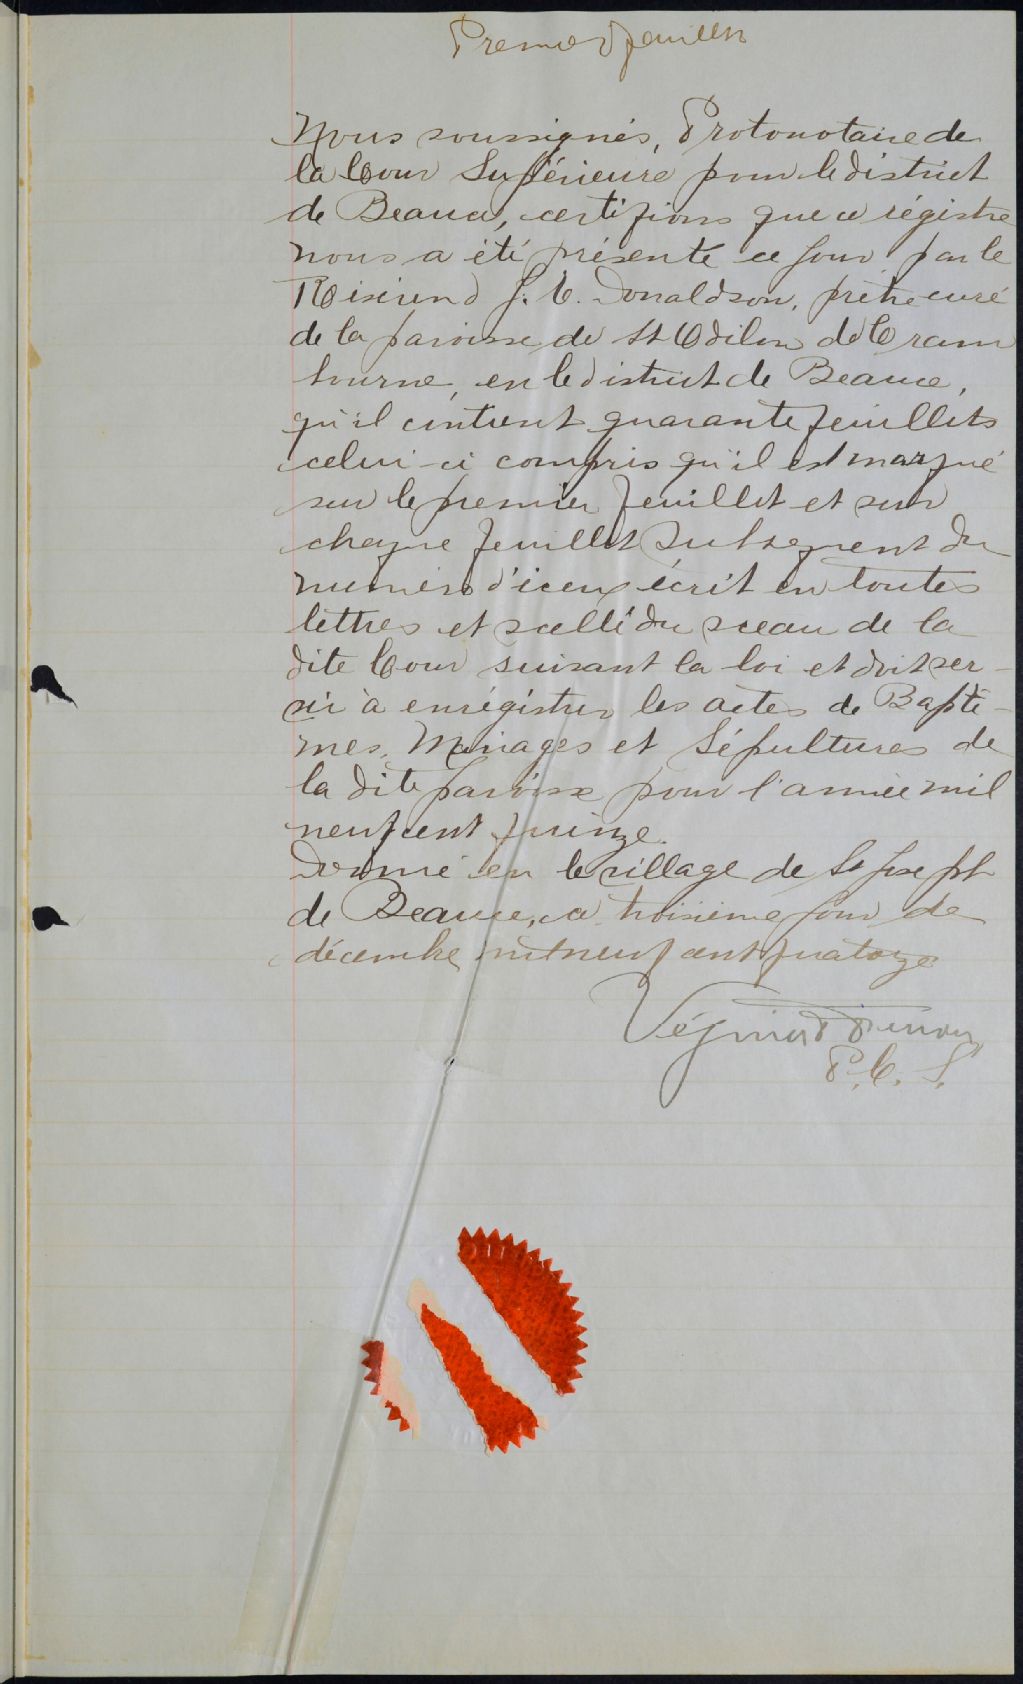 Premier feuillet
Nous soussignés, Protonotaire de
la Cour Supérieure pour le district
de Beauce, certifions que ce régistre
nous a été présenté ce jour par le
Révérend J. C. Donaldson, prêtre curé
de la paroisse de St Odilon de Cran
bourne, en le district de Beauce,
qu'il contient quarante feuillets
celui-ci compris qu'il est marqué
sur le premier feuillet et sur
chaque feuillet subséquent du
numéro d'iceux écrit en toutes
lettres et scellé du sceau de la
dite Cour suivant la loi et doit ser-
vir à enrégistrer les actes de Baptê-
mes, Mariages et Sépultures de
la dite paroisse pour l'année mil
neuf cent quinze.
Donné en le village de St Joseph
de Beauce, ce troisième jour de
décembre mil neuf cent quatorze
P. C. S.